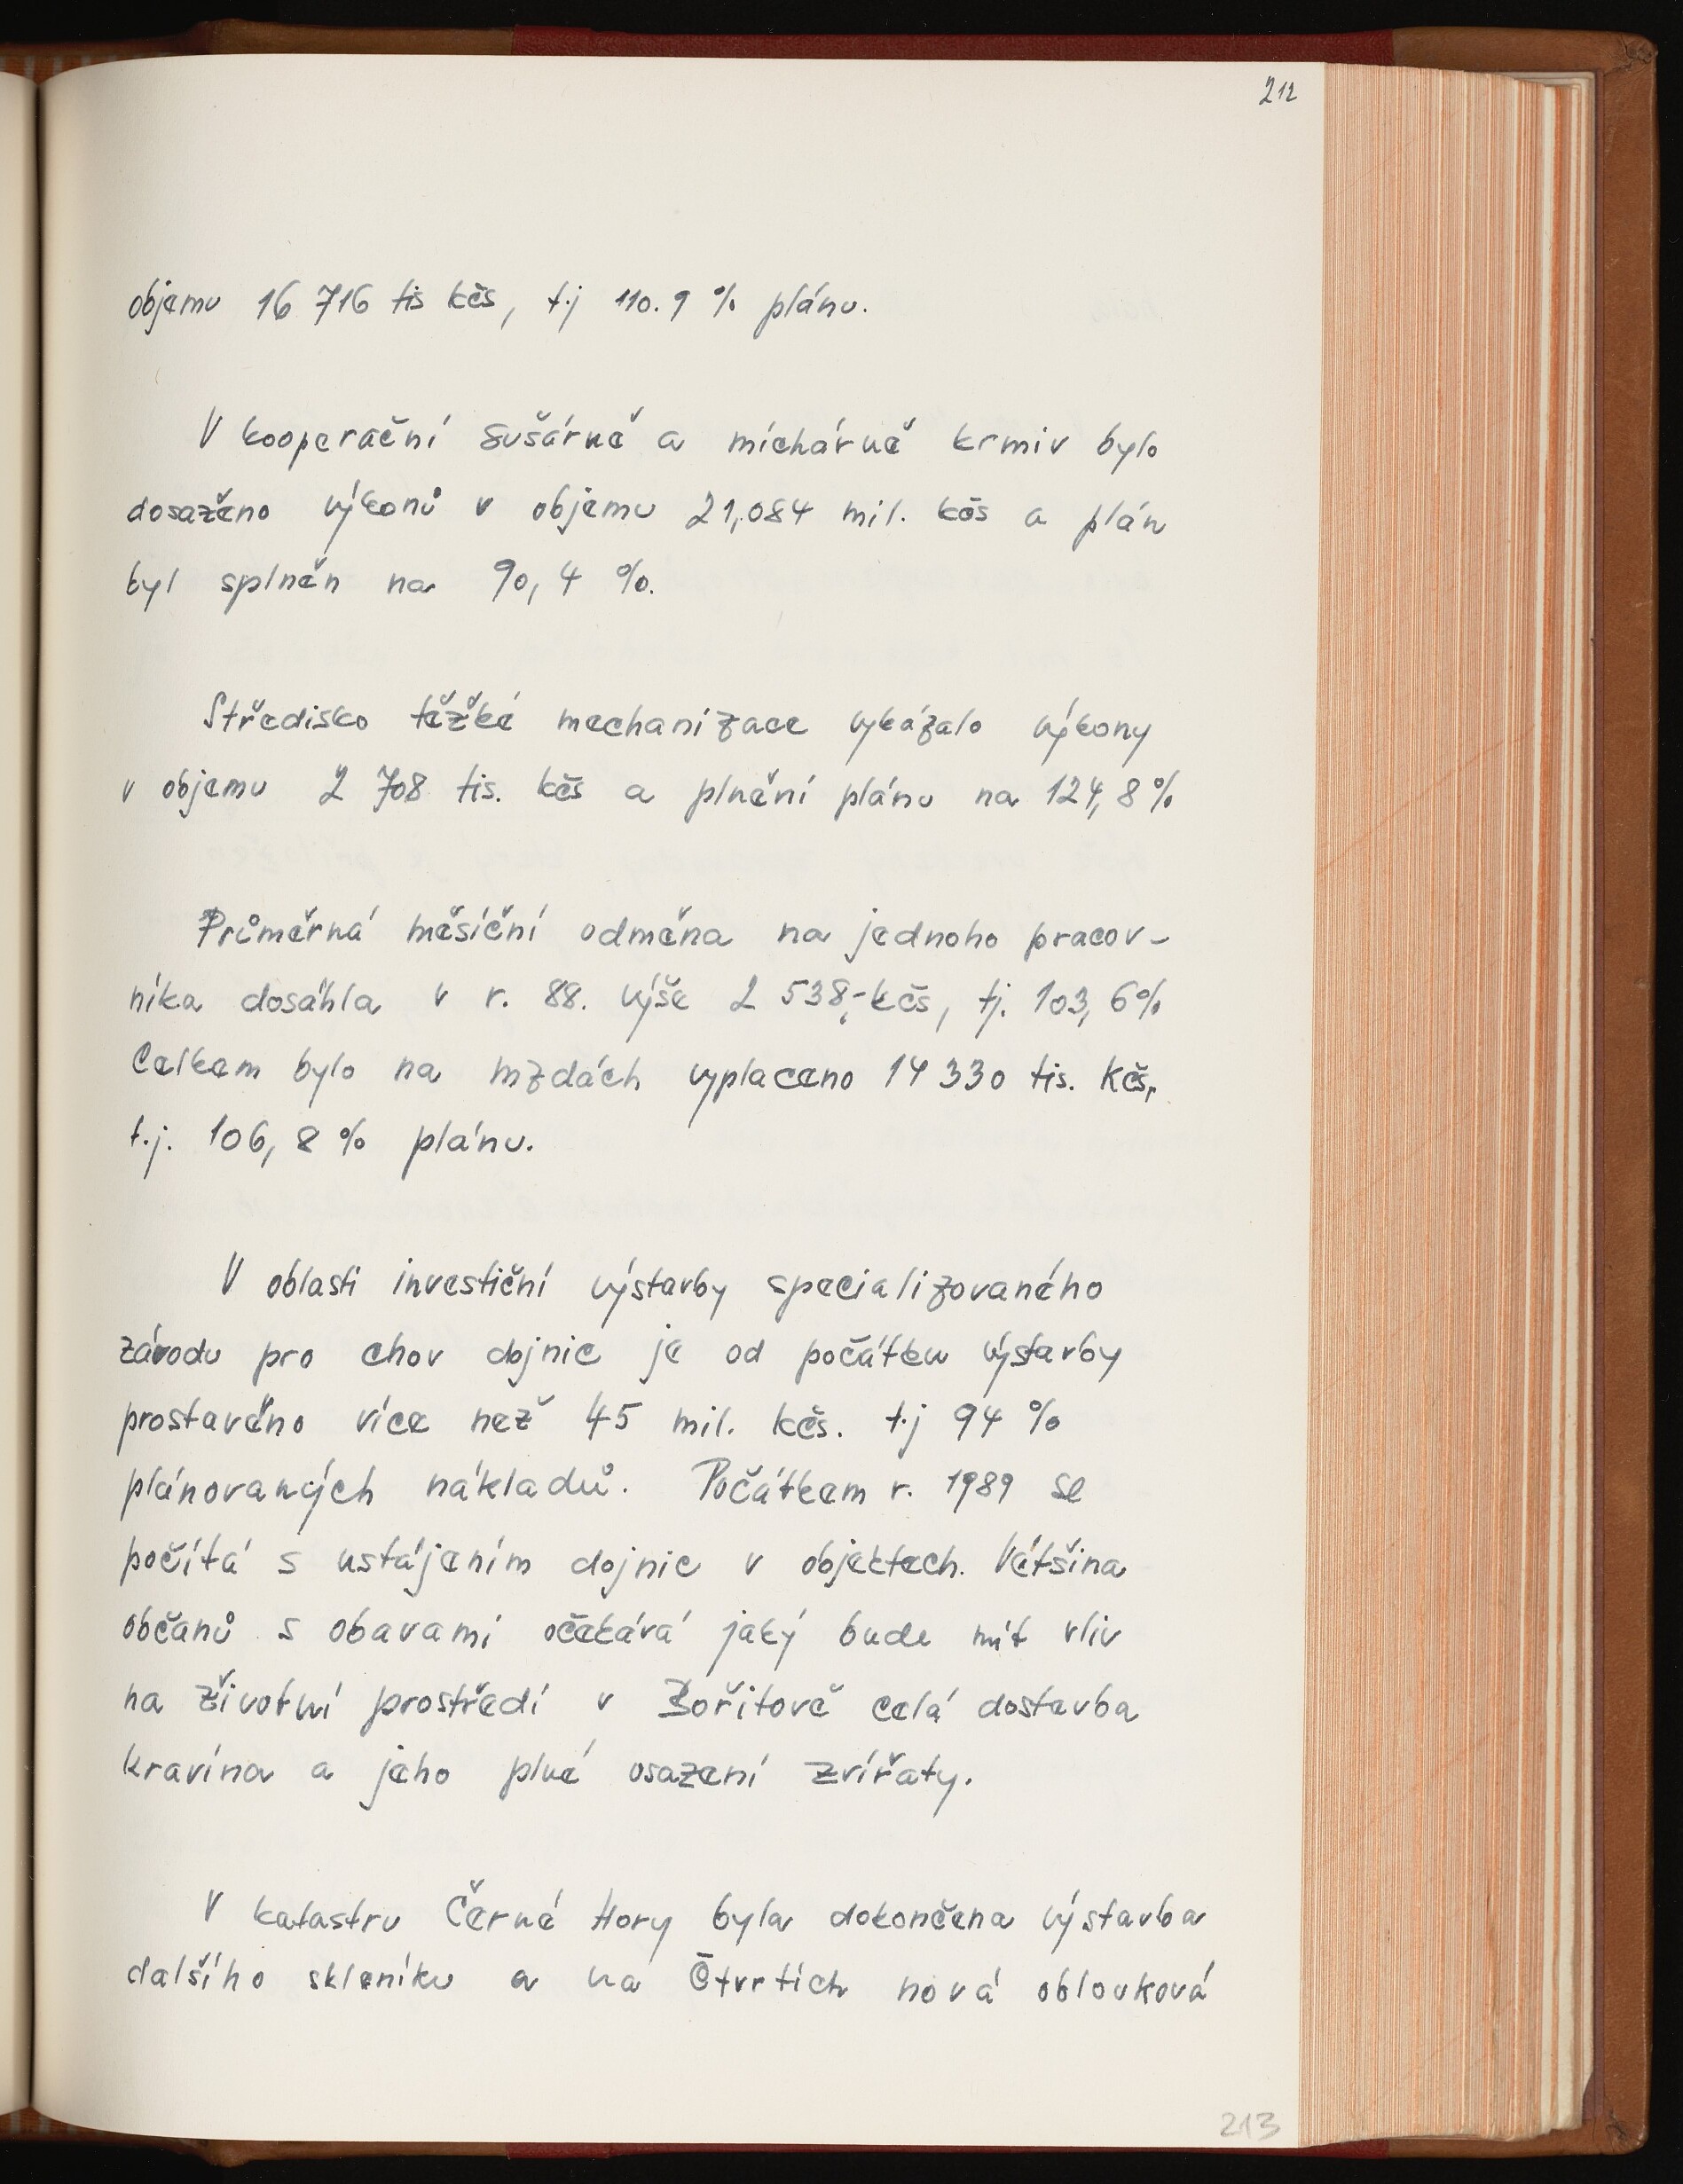 212
objemu 16 716 tis kčs, t.j 110.9 % plánu.
V kooperační sušárně a míchárně krmiv bylo
dosaženo výkonů v objemu 21,084 mil. kčs a plán
byl splněn na 90,4 %.
Středisko těžké mechanizace vykázalo výkony
v objemu 2 708 tis. kčs a plnění plánu na 124,8%
Průměrná měsíční odměna na jednoho pracov-
níka dosáhla v r. 88. výše 2 538,- kčs, tj. 103,6%
Celkem bylo na mzdách vyplaceno 14 330 tis. Kčs,
t.j. 106,8 % plánu.
V oblasti investiční výstavby specializovaného
závodu pro chov dojnic je od počátku výstavby
prostavěno více než 45 mil. kčs. t.j 94 %
plánovaných nákladů. Počátkem r. 1989 se
počítá s ustájením dojnic v objektech. Většina
občanů s obavami očekává jaký bude mít vliv
na životní prostředí v Bořitově celá dostavba
kravína a jeho plné osazení zvířaty.
V katastru Černé Hory byla dokončena výstavba
dalšího skleníku a na Čtvrtích nová oblouková
213